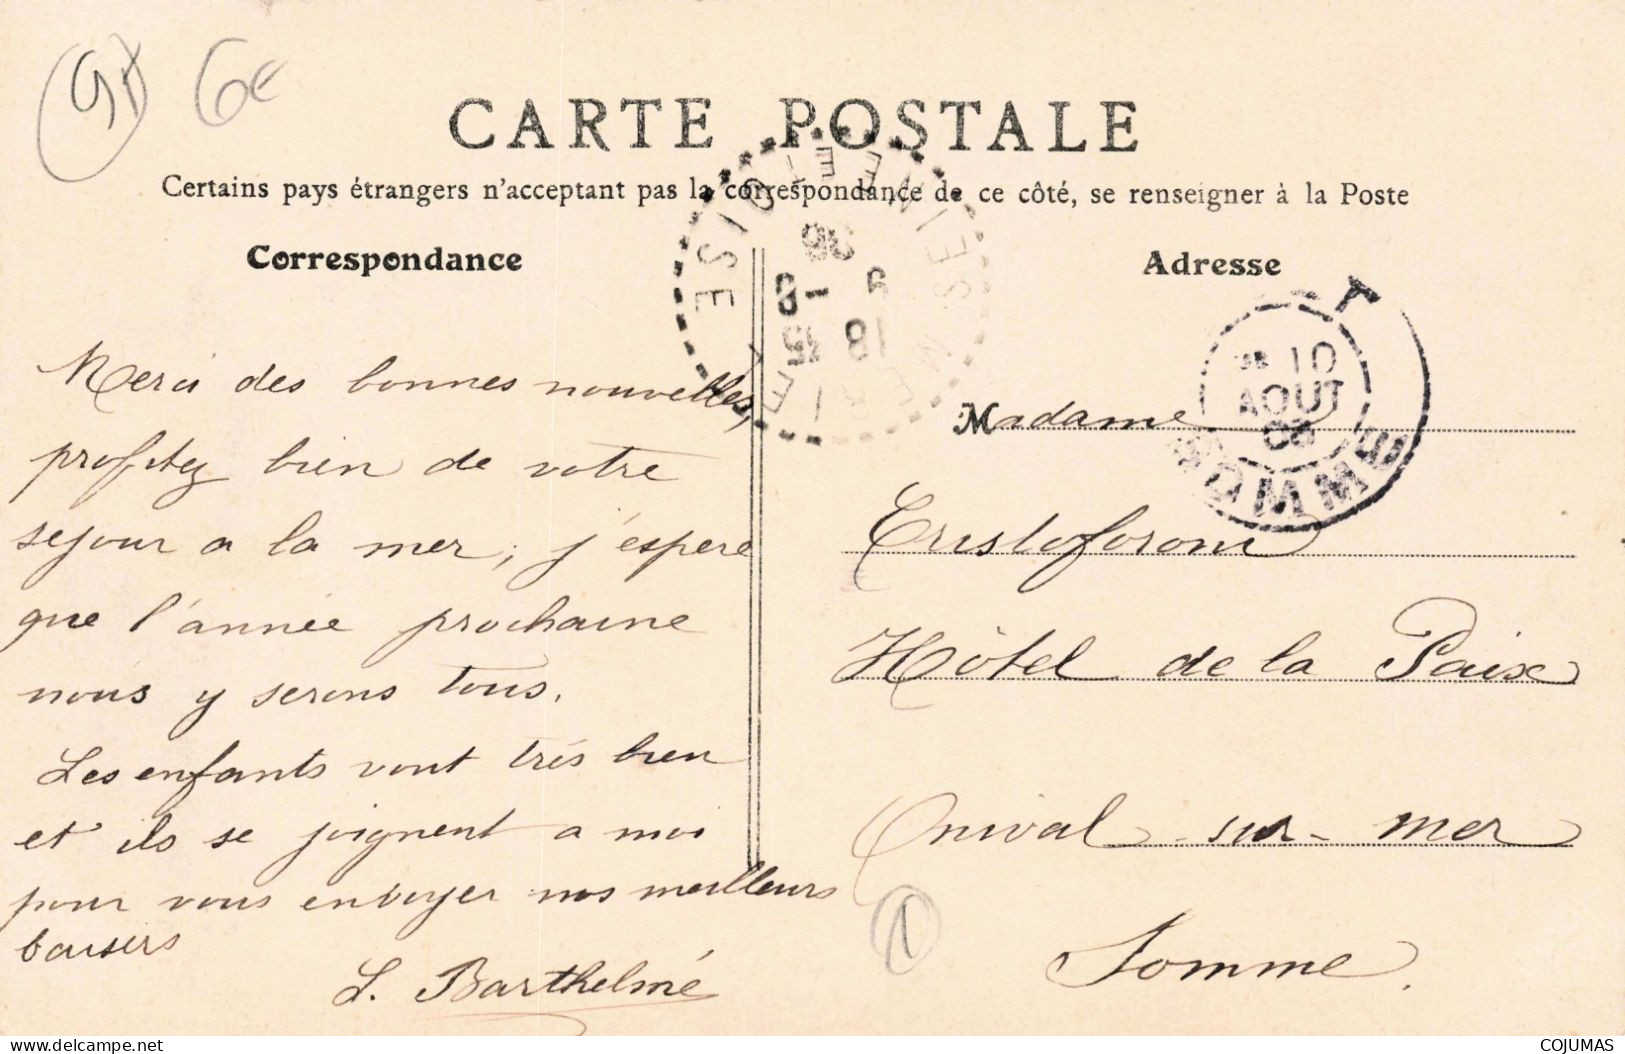 6€
CARTE POSTALE
Certains pays étrangers n'acceptant pas la correspondance de ce côté, se renseigner à la Poste
Correspondance
Merci des bonnes nouvelles,
profitez bien de votre
sejour a la mer, j'espere
que l'année prochaine
nous y serons tous.
Les enfants vont très bien
et ils se joignent a moi
pour vous envoyer nos meilleurs
baisers
L. Barthelmé
Adresse
10
AOUT
SOMME
Madame
Cristoforoni
Hôtel de la Paix
Onival-sur-mer
Somme.
1
delcampe.net
COJUMAS